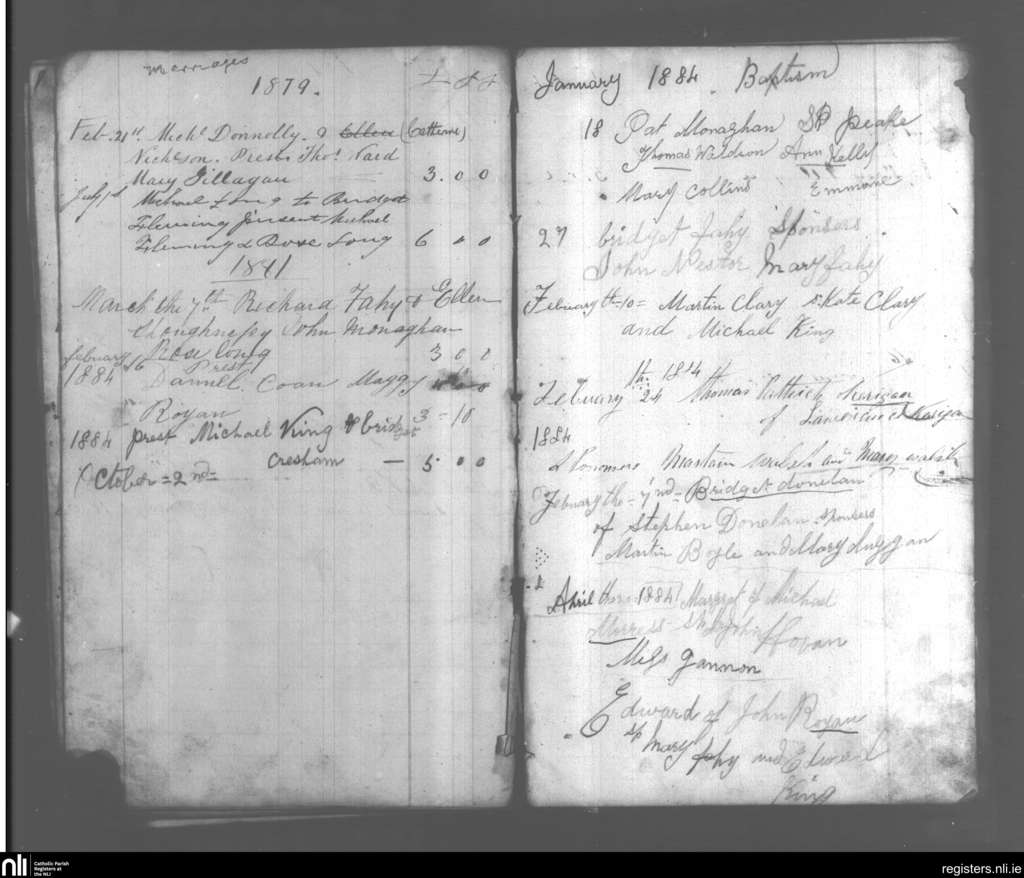 Marriages
1879.
Feb. 21st Mchl Donnolly & Ellen (Catherine)
Nickson. Presn. Thos. Ward
Mary Gillagan 3.00
July 1st Michael Long to Bridget
Fleming present Michael
Fleming & Rose Long 6 0 0
1881
March the 7th Richard Fahy to Ellen
Cloughnessy John Monaghan
Rose Long 3 0 0
february 16 Prest
1884 Dannel Coan Maggy
Royan 3 = 10
1884 prest Michael King & bridget
Cresham — 5 0 0
October = 2nd =
January 1884. Baptism
18 Pat Monaghan SP
Thomas Waldron Ann Kelly
Mary Collins
27 bridget fahy Sponsers
John Nestor Mary fahy
February th = 10 = Martin Clary Kate Clary
and Michael King
th 1884
February 24 thomas Pattrick
of
1884
Martain and Mary walsh
Febuary the = 7nd = Bridget donelan
of Stephen Donelan sponsers
Martin Boyle and Mary duggan
April 1884 Margret of Michael
John Hovan
Miss gannon
Edward of John Royan
sp Mary fahy and Edward
King
nli Catholic Parish
Registers at
the NLI
registers.nli.ie